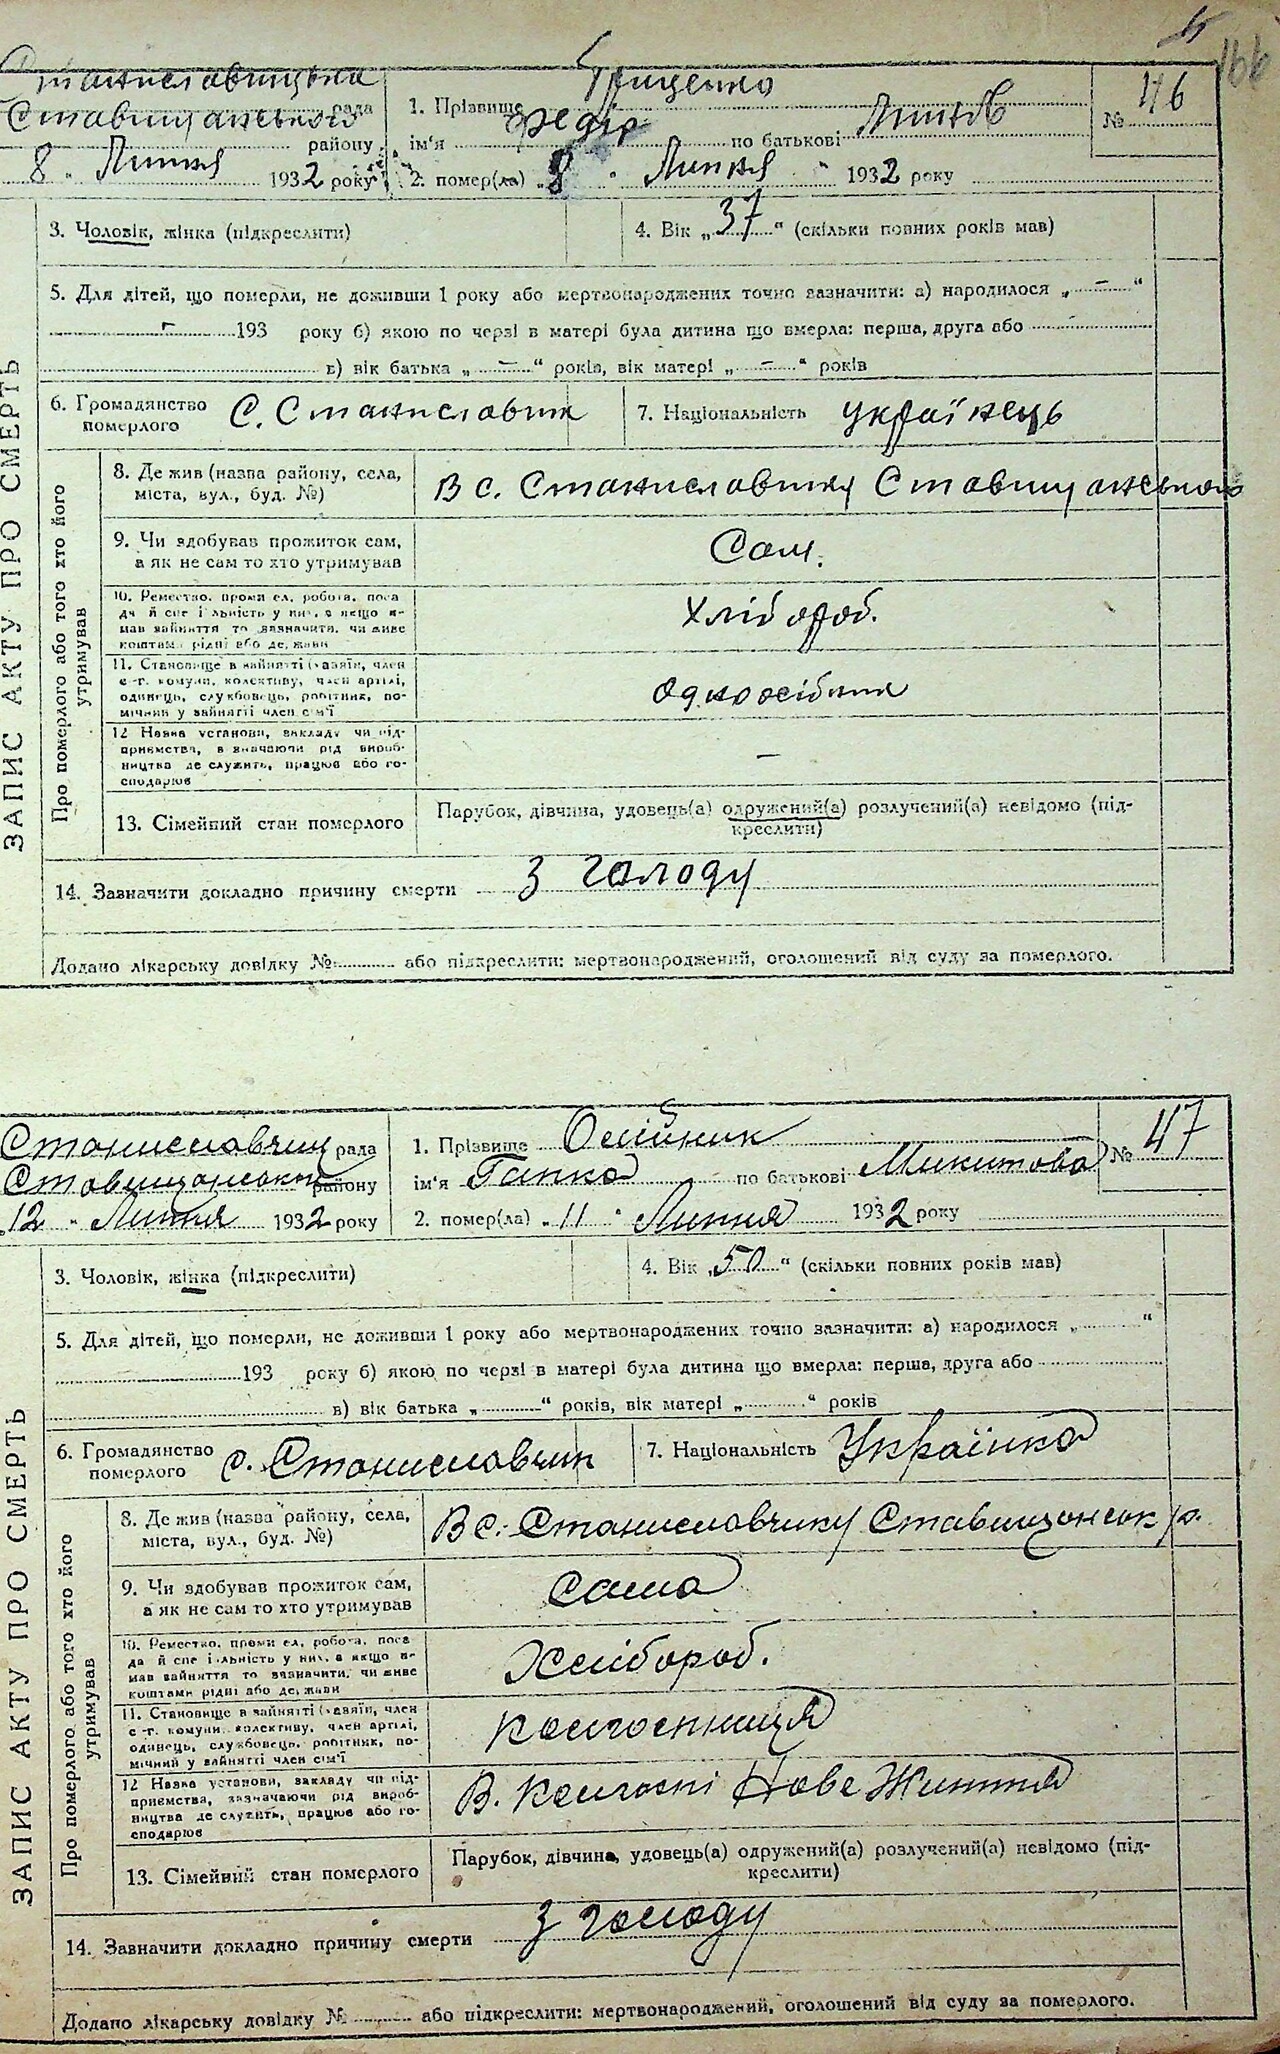 166
Станиславчицька рада
Ставищанського району
8 " Липня 1932 року
1. Прізвище Грищенко
ім'я Федір по батькові
2. помер(ла) „ 8 " Липня 1932 року
№ 46
3. Чоловік, жінка (підкреслити)
4. Вік „ 37 " (скільки повних років мав)
5. Для дітей, що померли, не доживши 1 року або мертвонароджених точно зазначити: а) народилося „ — "
— 193 року б) якою по черзі в матері була дитина що вмерла: перша, друга або
в) вік батька „ — " років, вік матері „ — " років
6. Громадянство
померлого
С. Станиславчик
7. Національність українець
ЗАПИС АКТУ ПРО СМЕРТЬ
Про померлого або того хто його
утримував
8. Де жив (назва району, села,
міста, вул., буд. №)
В с. Станиславчику Ставищанського
9. Чи здобував прожиток сам,
а як не сам то хто утримував
Сам.
10. Ремество, промисел, робота, поса
да й спеціяльність у них, а якщо не
мав зайняття то зазначити, чи живе
коштами рідні або держави
Хлібороб.
11. Становище в зайнятті (хазяїн, член
с.-г. комуни, колективу, член артілі,
одинець, службовець, робітник, по-
мічний у зайнятті член сім'ї
Одноосібник
12 Назва установи, закладу чи під-
приємства, зазначаючи рід вироб-
ництва де служить, працює або го-
сподарює
—
13. Сімейний стан померлого
Парубок, дівчина, удовець(а) одружений(а) розлучений(а) невідомо (під-
креслити)
14. Зазначити докладно причину смерти З голоду
Додано лікарську довідку № або підкреслити: мертвонароджений, оголошений від суду за померлого.
Станиславчиц рада
Ставищанськ району
12 " Липня 1932 року
1. Прізвище Олійник
ім'я Гапка по батькові Микитова
2. помер(ла) „ 11 " Липня 1932 року
№ 47
3. Чоловік, жінка (підкреслити)
4. Вік „ 50 " (скільки повних років мав)
5. Для дітей, що померли, не доживши 1 року або мертвонароджених точно зазначити: а) народилося „ "
193 року б) якою по черзі в матері була дитина що вмерла: перша, друга або
в) вік батька „ " років, вік матері „ " років
6. Громадянство
померлого
с. Станиславчик
7. Національність Українка
ЗАПИС АКТУ ПРО СМЕРТЬ
Про померлого або того хто його
утримував
8. Де жив (назва району, села,
міста, вул., буд. №)
В с. Станиславчику Ставищанськ р.
9. Чи здобував прожиток сам,
а як не сам то хто утримував
Сама
10. Ремество, промисел, робота, поса
да й спеціяльність у них, а якщо не
мав зайняття то зазначити, чи живе
коштами рідні або держави
Хлібороб.
11. Становище в зайнятті (хазяїн, член
с.-г. комуни, колективу, член артілі,
одинець, службовець, робітник, по-
мічний у зайнятті член сім'ї
Колгоспниця
12 Назва установи, закладу чи під-
приємства, зазначаючи рід вироб-
ництва де служить, працює або го-
сподарює
В. Колгоспі Нове Життя
13. Сімейний стан померлого
Парубок, дівчина, удовець(а) одружений(а) розлучений(а) невідомо (під-
креслити)
14. Зазначити докладно причину смерти З голоду
Додано лікарську довідку № або підкреслити: мертвонароджений, оголошений від суду за померлого.